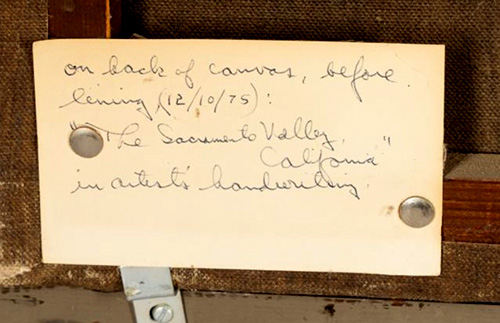 on back of canvas, before
lining (12/10/75):
"The Sacramento Valley,
California"
in artist's handwriting.